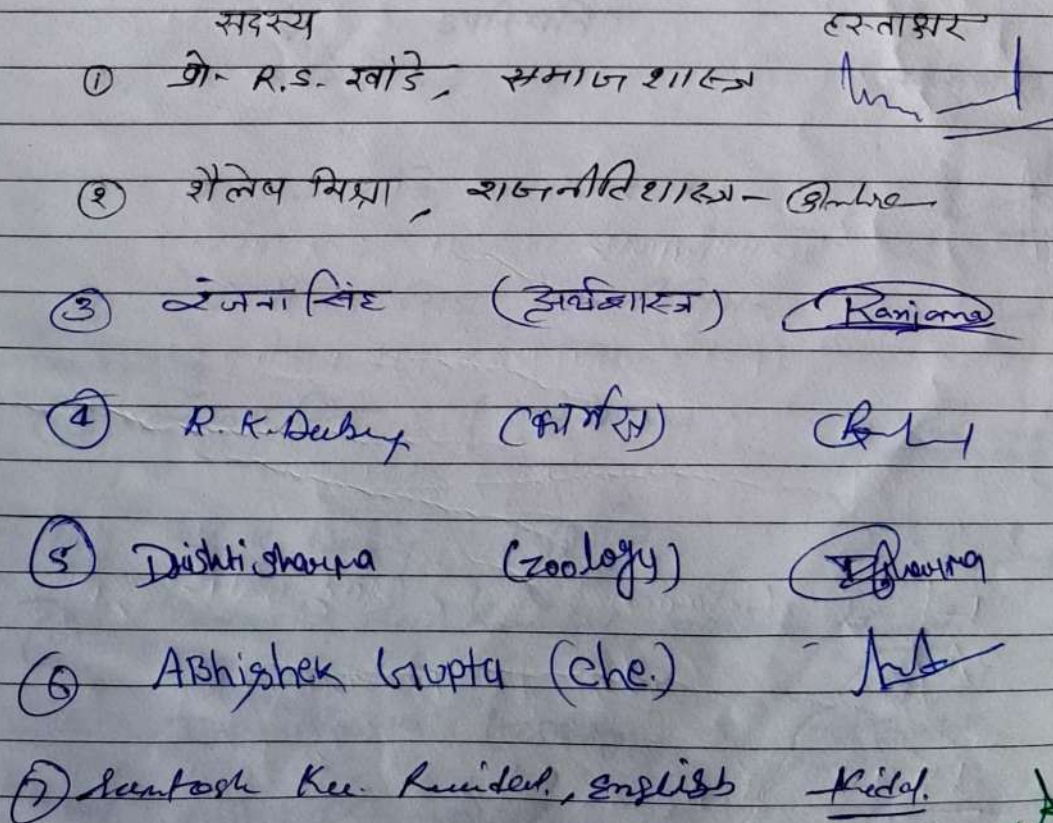 सदस्य हस्ताक्षर
① प्रो- R.S. खांडे, समाज शास्त्र
② शैलेष मिश्रा, राजनीतिशास्त्र -
③ रंजना सिंह (अर्थशास्त्र) Ranjana
④ R.K.Dubey (कॉमर्स)
⑤ Drishti sharma (zoology) Dsharma
⑥ ABhishek Gupta (che.)
⑦ Santosh Ku. , English